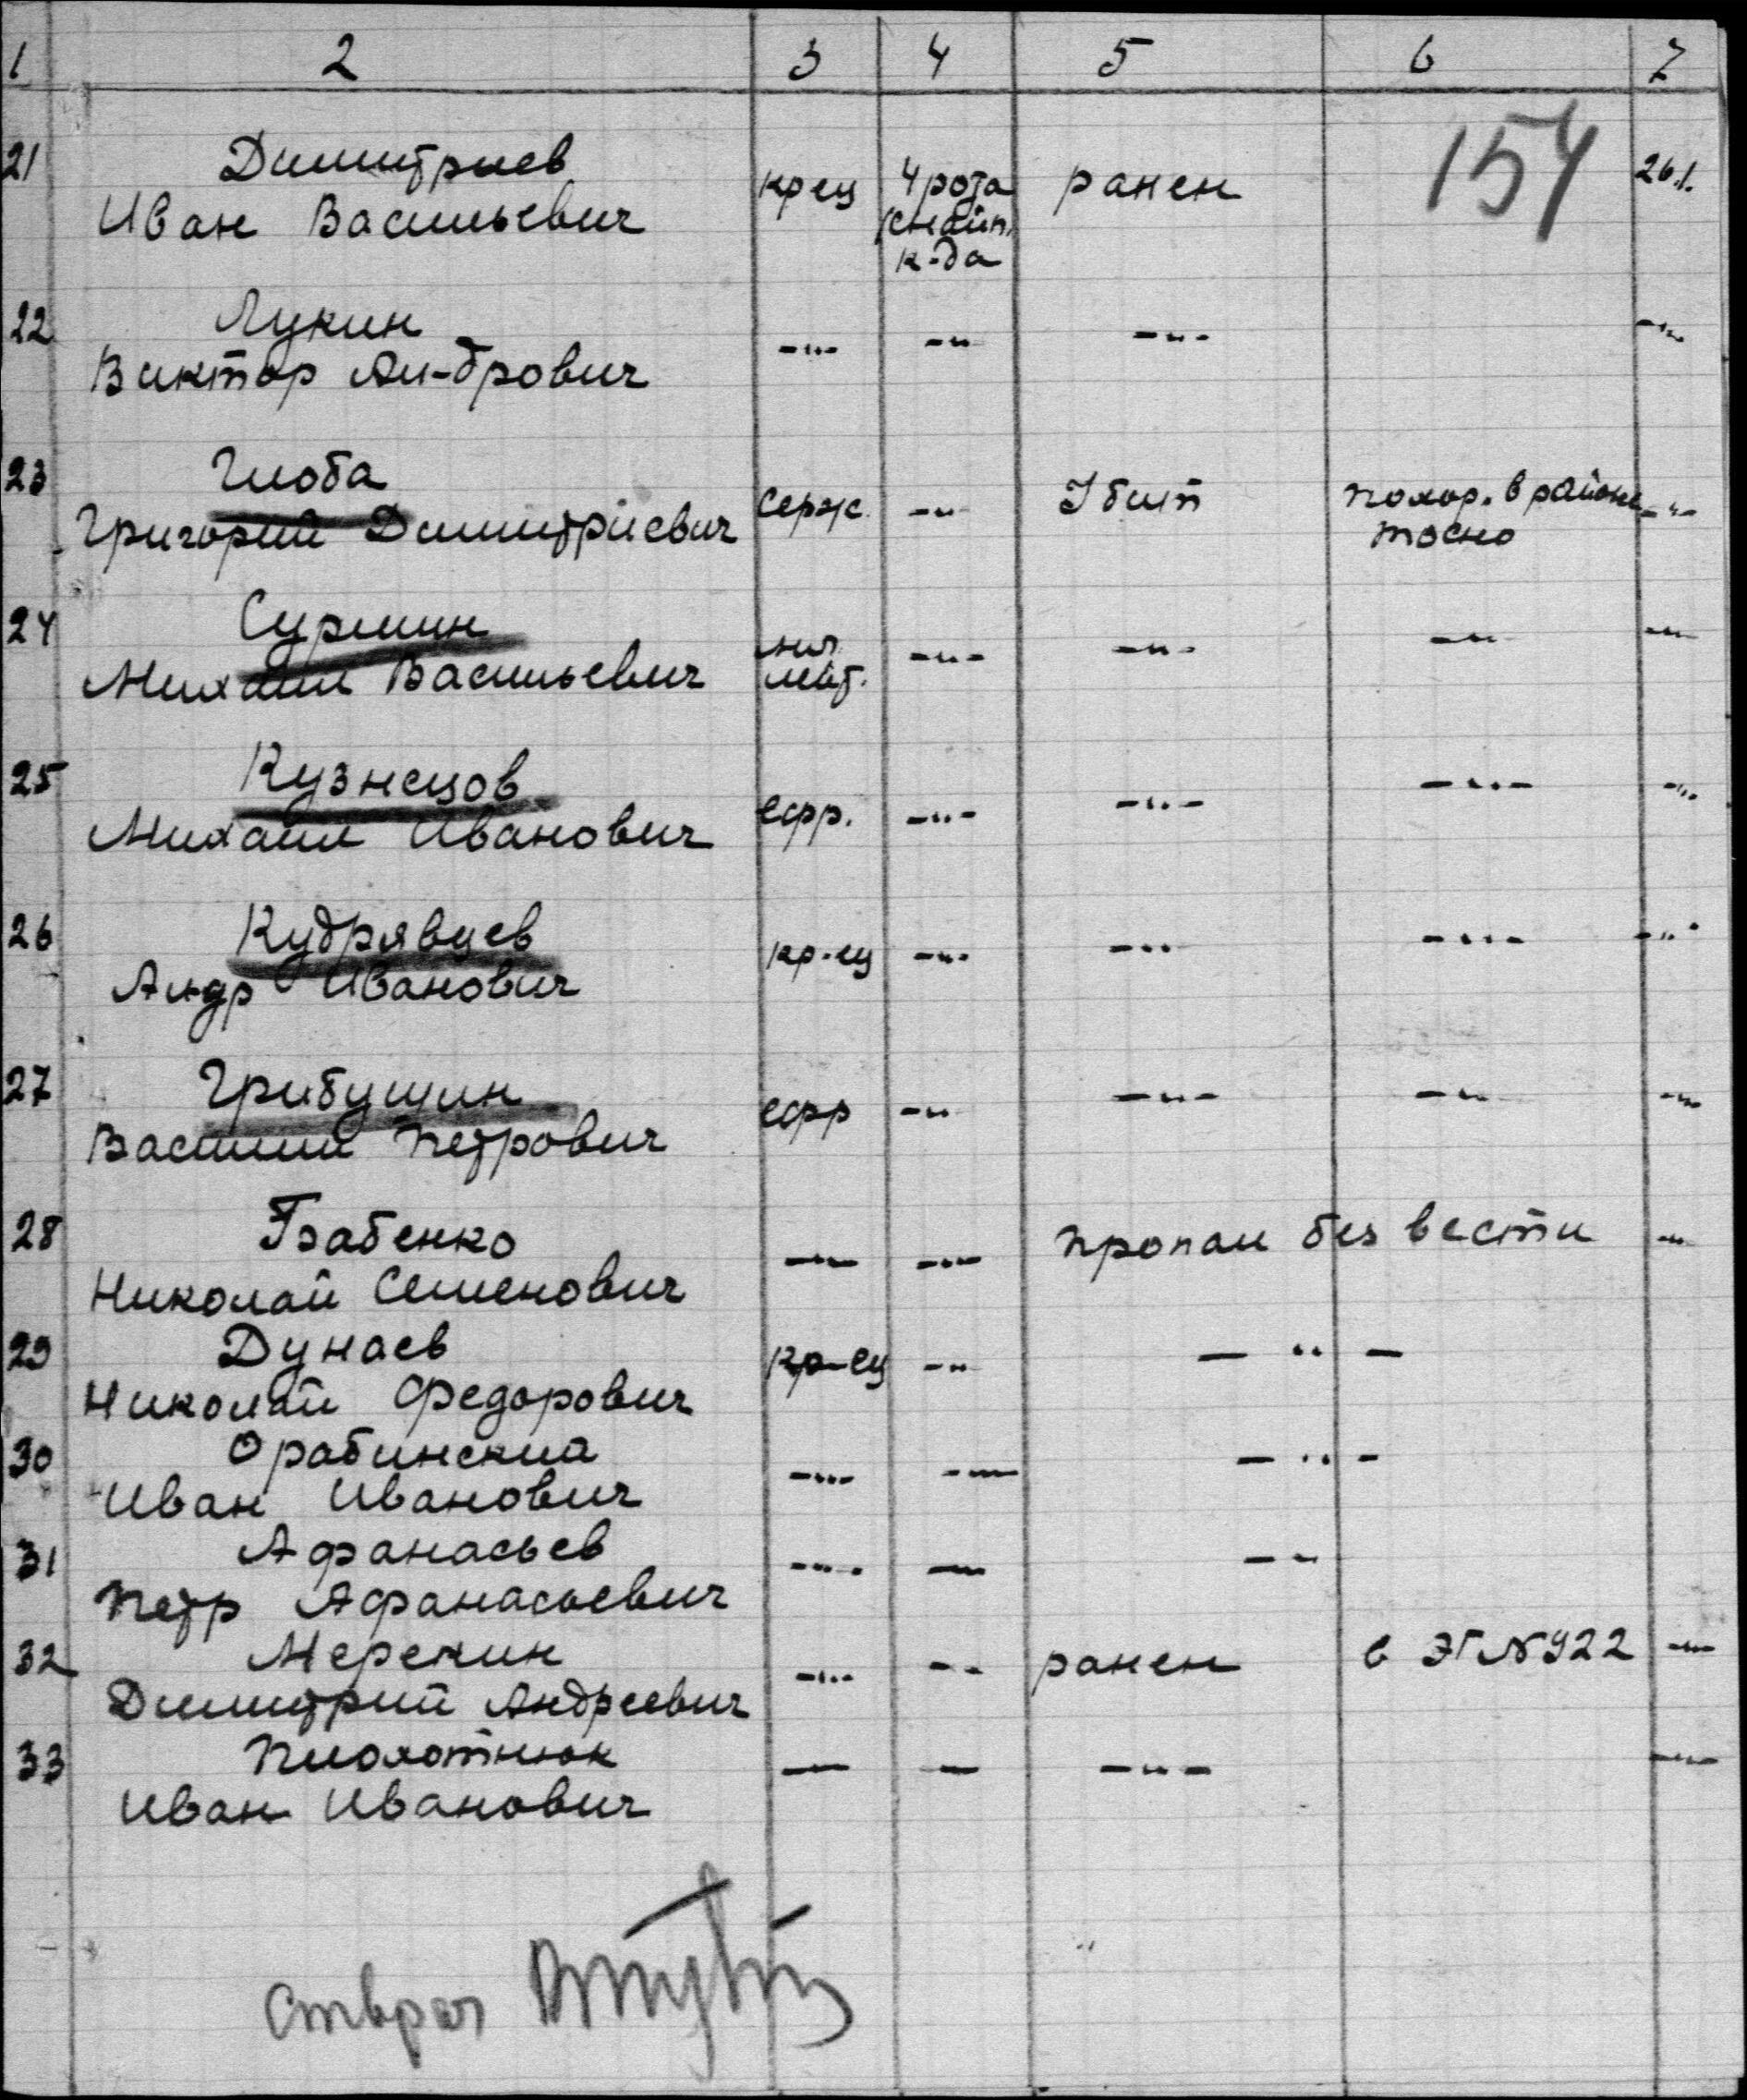 1 2 3 4 5 6 7
154
21 Димитриев крец 4 рота ранен 26.1.
Иван Васильевич снайп.
к-да
22 Лукин -"- -"- -"- -"-
Виктор Ал-дрович
23 Глоба серж. -"- Убит похор. в районе -"-
Григорий Димитриевич тосно
24 Сурмин мл. -"- -"- -"- -"-
Михаил Васильевич лейт.
25 Кузнецов ефр. -"- -"- -"- -"-
Михаил Иванович
26 Кудрявцев кр-ец -"- -"- -"- -"-
Ал-др Иванович
27 Грибушин ефр -"- -"- -"- -"-
Василий Петрович
28 Бабенко -"- -"- пропал без вести -"-
Николай Семенович
29 Дунаев кр-ец -"- -"-
Николай Федорович
30 Орабинский -"- -"- -"-
Иван Иванович
31 Афанасьев -"- -"- -"-
Петр Афанасьевич
32 Мерекин -"- -"- ранен в ЭГ №922 -"-
Димитрий Андреевич
33 Плохотнюк -"- -"- -"- -"-
Иван Иванович
Ств врач